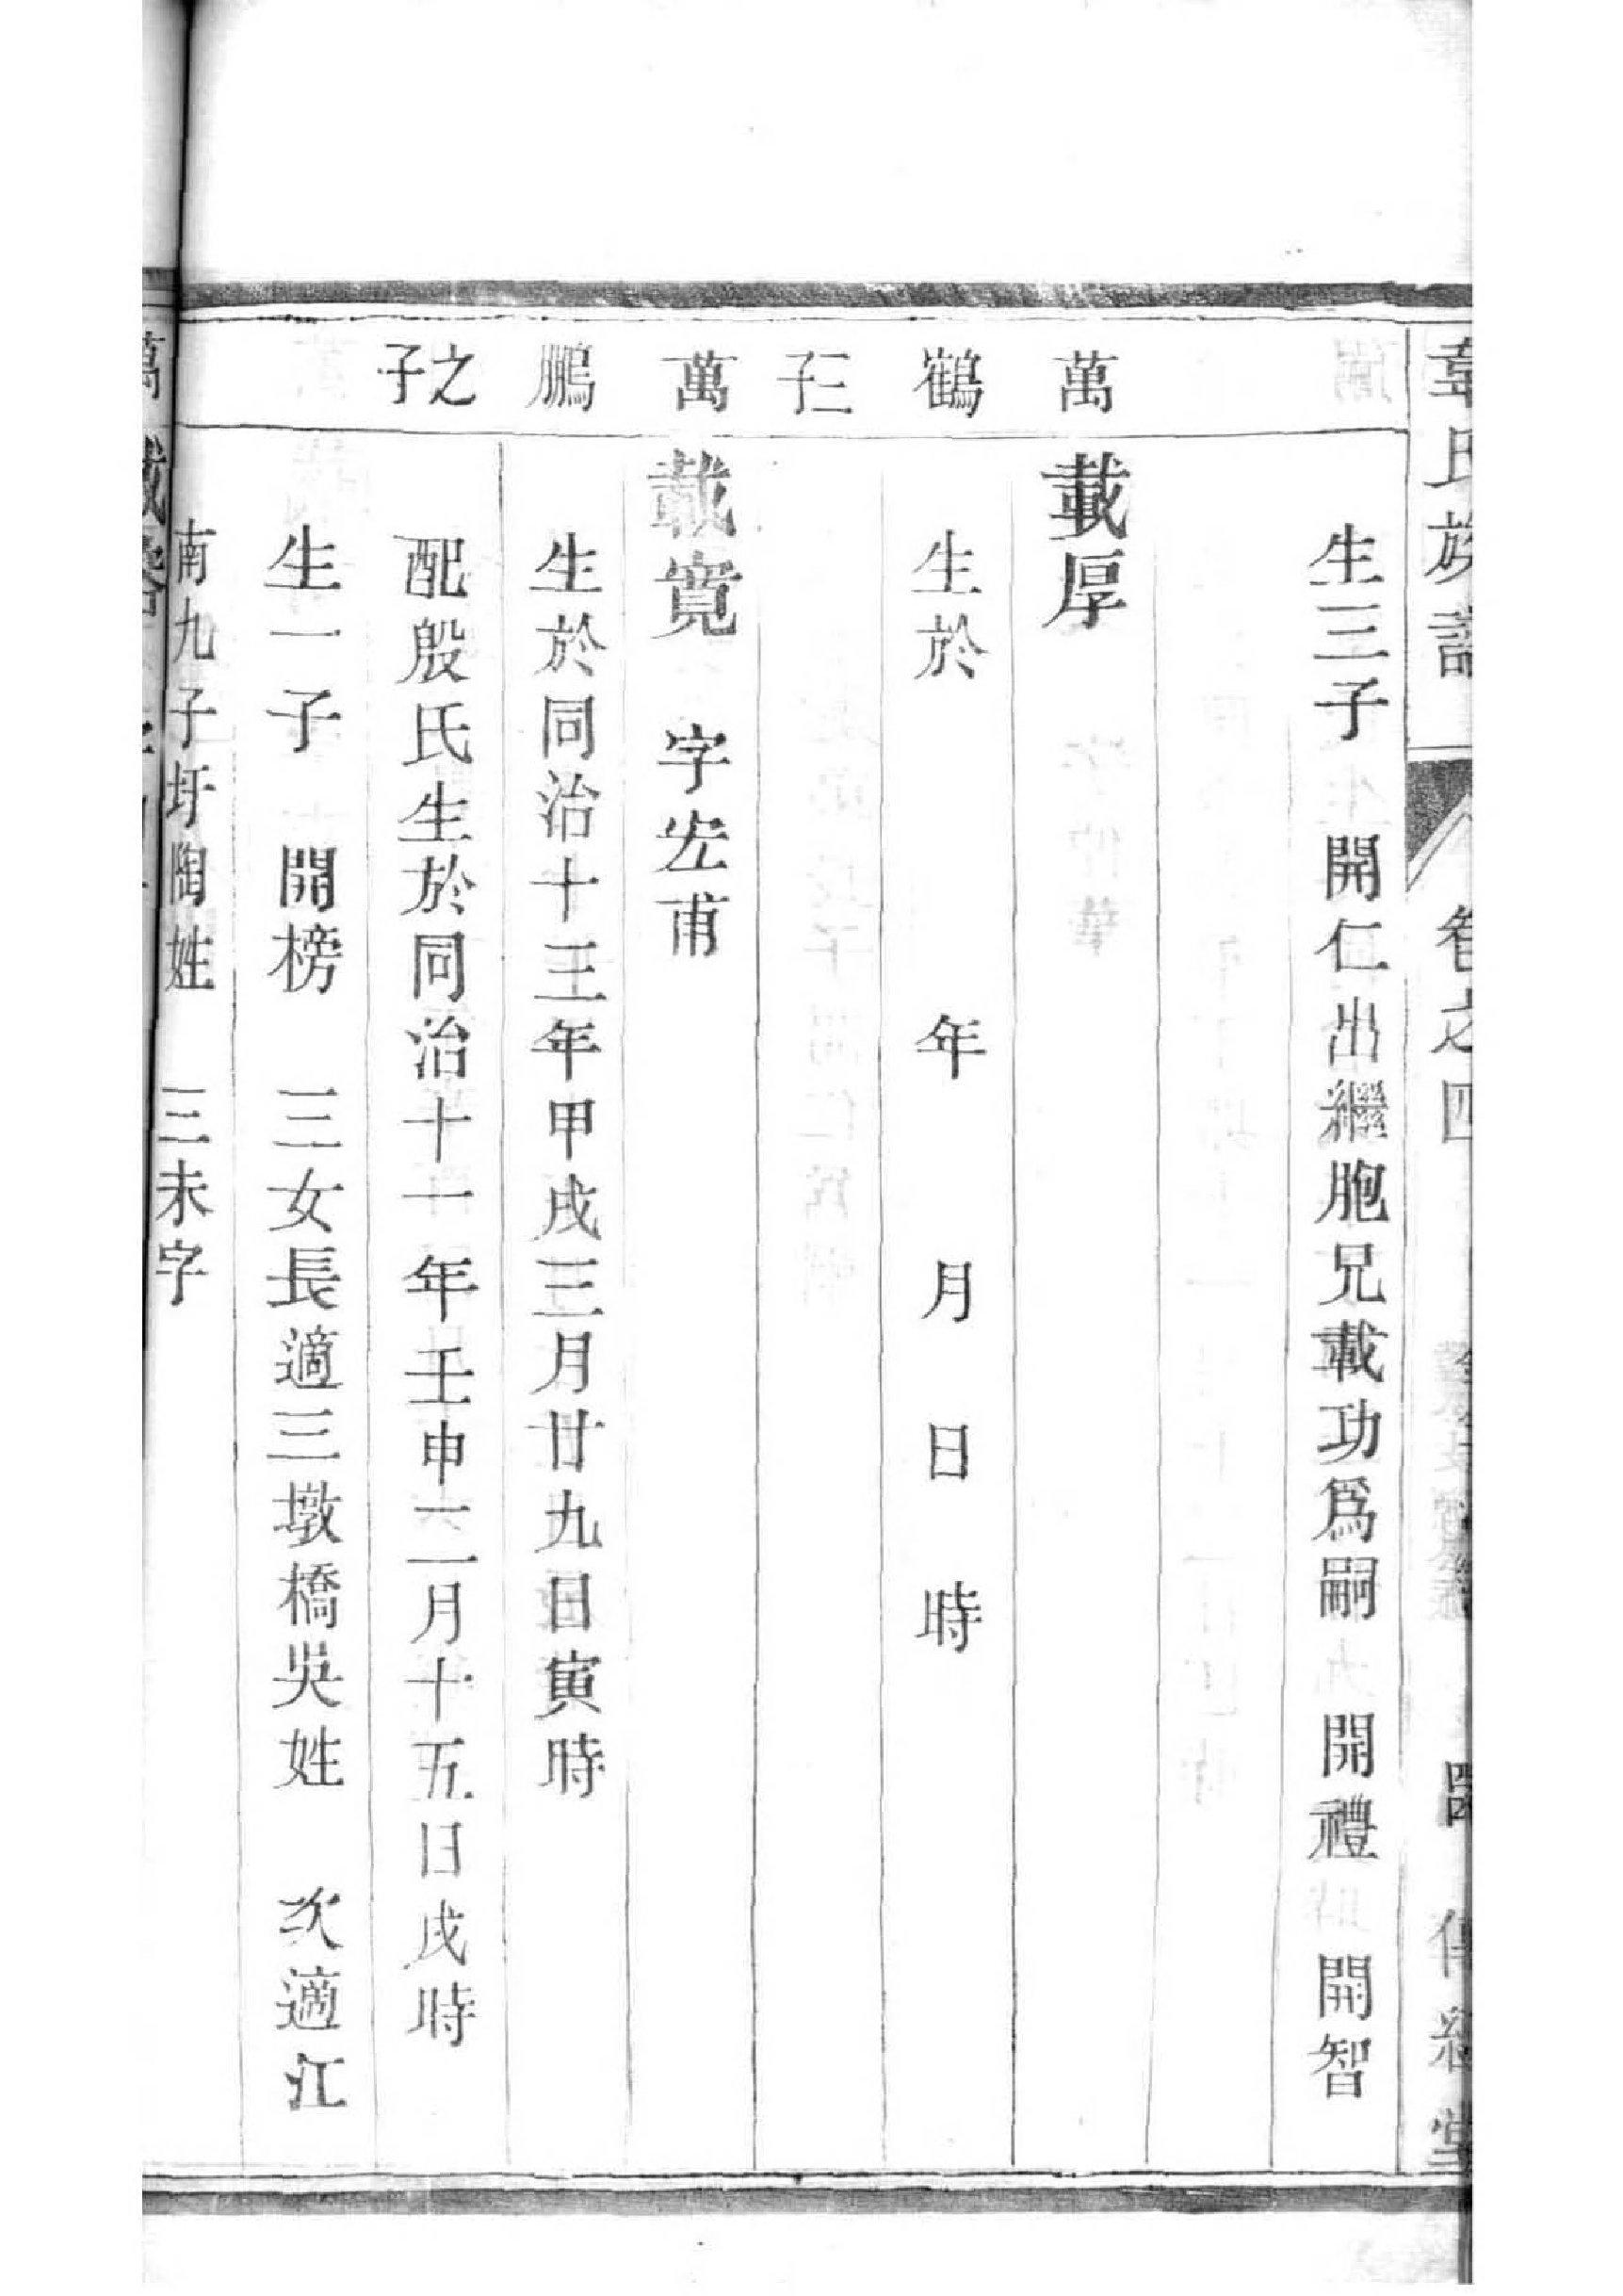 章氏族譜 卷之四
生三子 開仁出繼胞兄載功爲嗣 開禮 開智
萬鶴三子
載厚
生於 年 月 日 時
萬鵬之子
載寬 字宏甫
生於同治十三年甲戌三月廿九日寅時
配殷氏生於同治十一年壬申二月十五日戌時
生一子 開榜 三女長適三墩橋吳姓 次適江
南九子圩陶姓 三未字